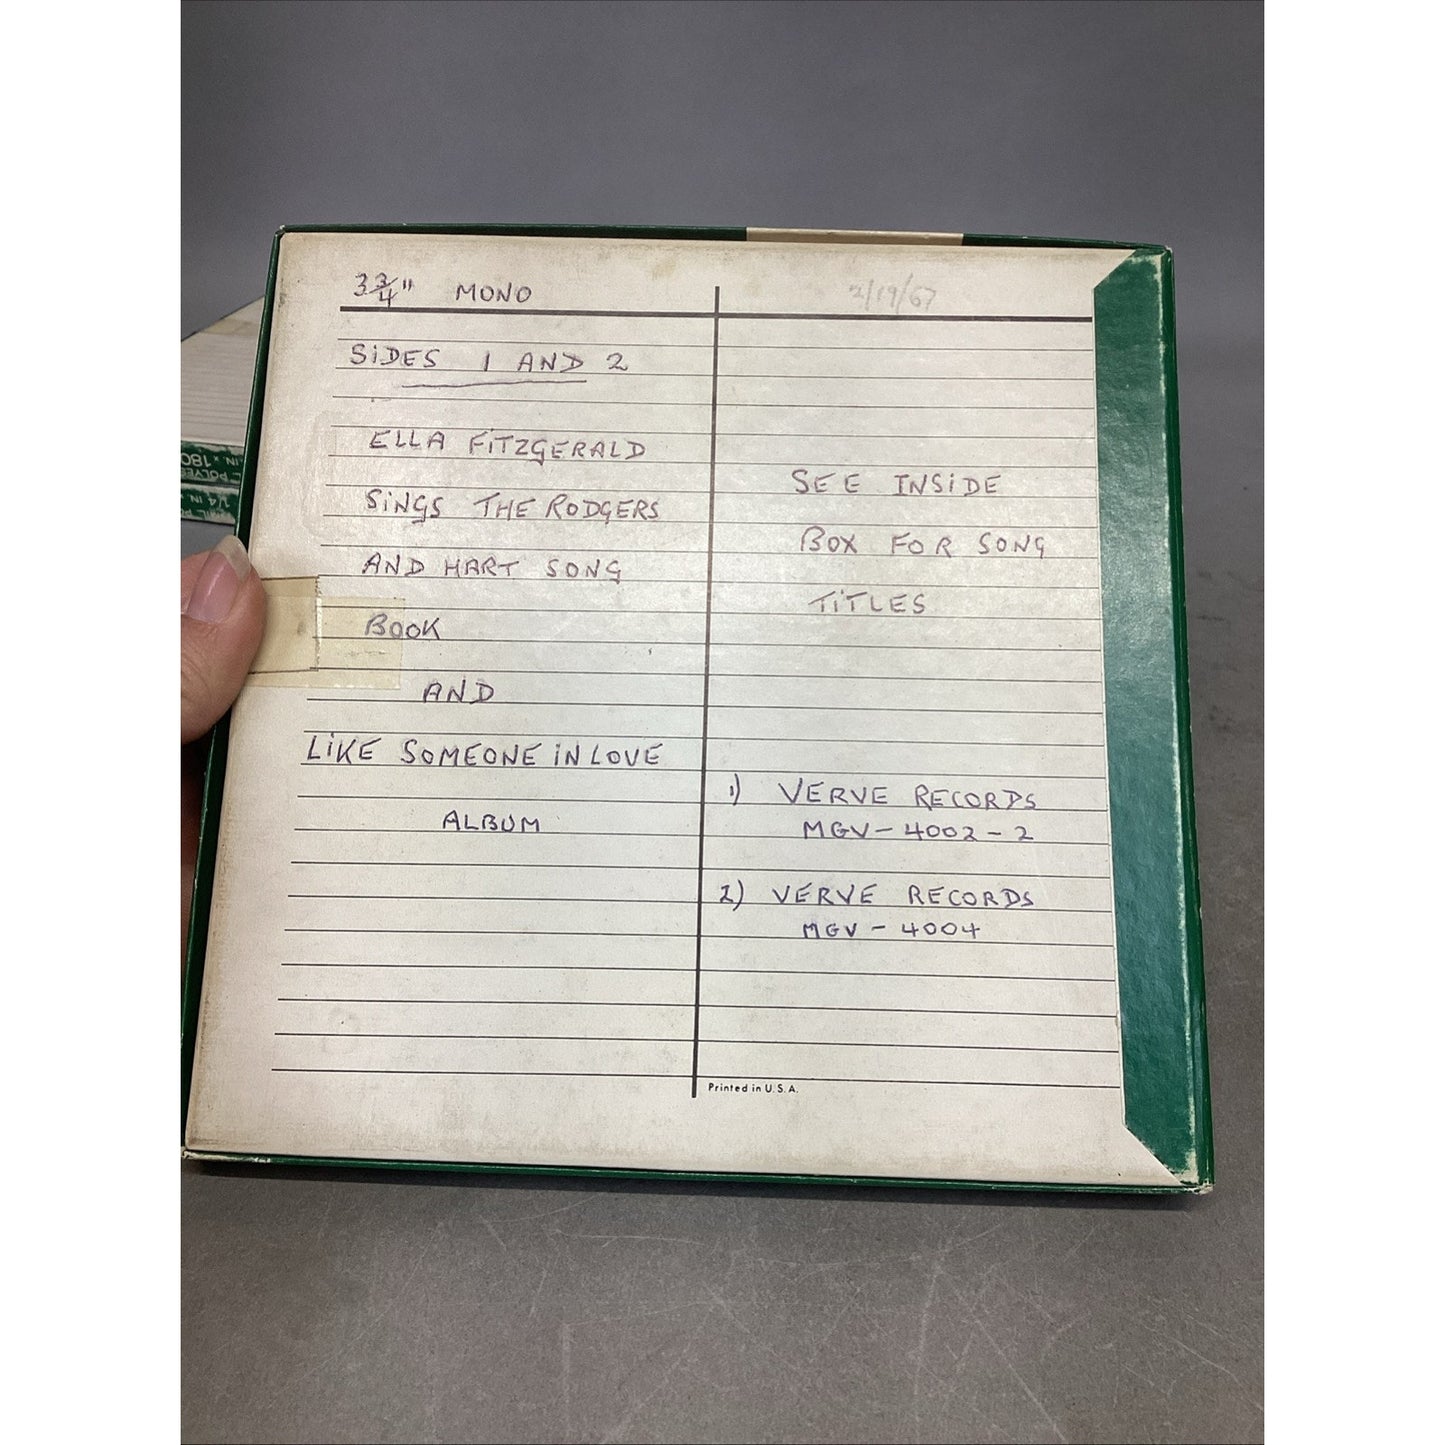 3 3/4" MONO
2/19/67
SiDES 1 AND 2
ELLA FiTZGERALD
SiNGS THE RODGERS
AND HART SONG
BOOK
AND
LiKE SOMEONE iN LOVE
ALBUM
SEE INSiDE
BOX FOR SONG
TiTLES
1) VERVE RECORDS
MGV - 4002 - 2
2) VERVE RECORDS
MGV - 4004
Printed in U.S.A.
IN. x 180
POLYES
1/4 IN. x